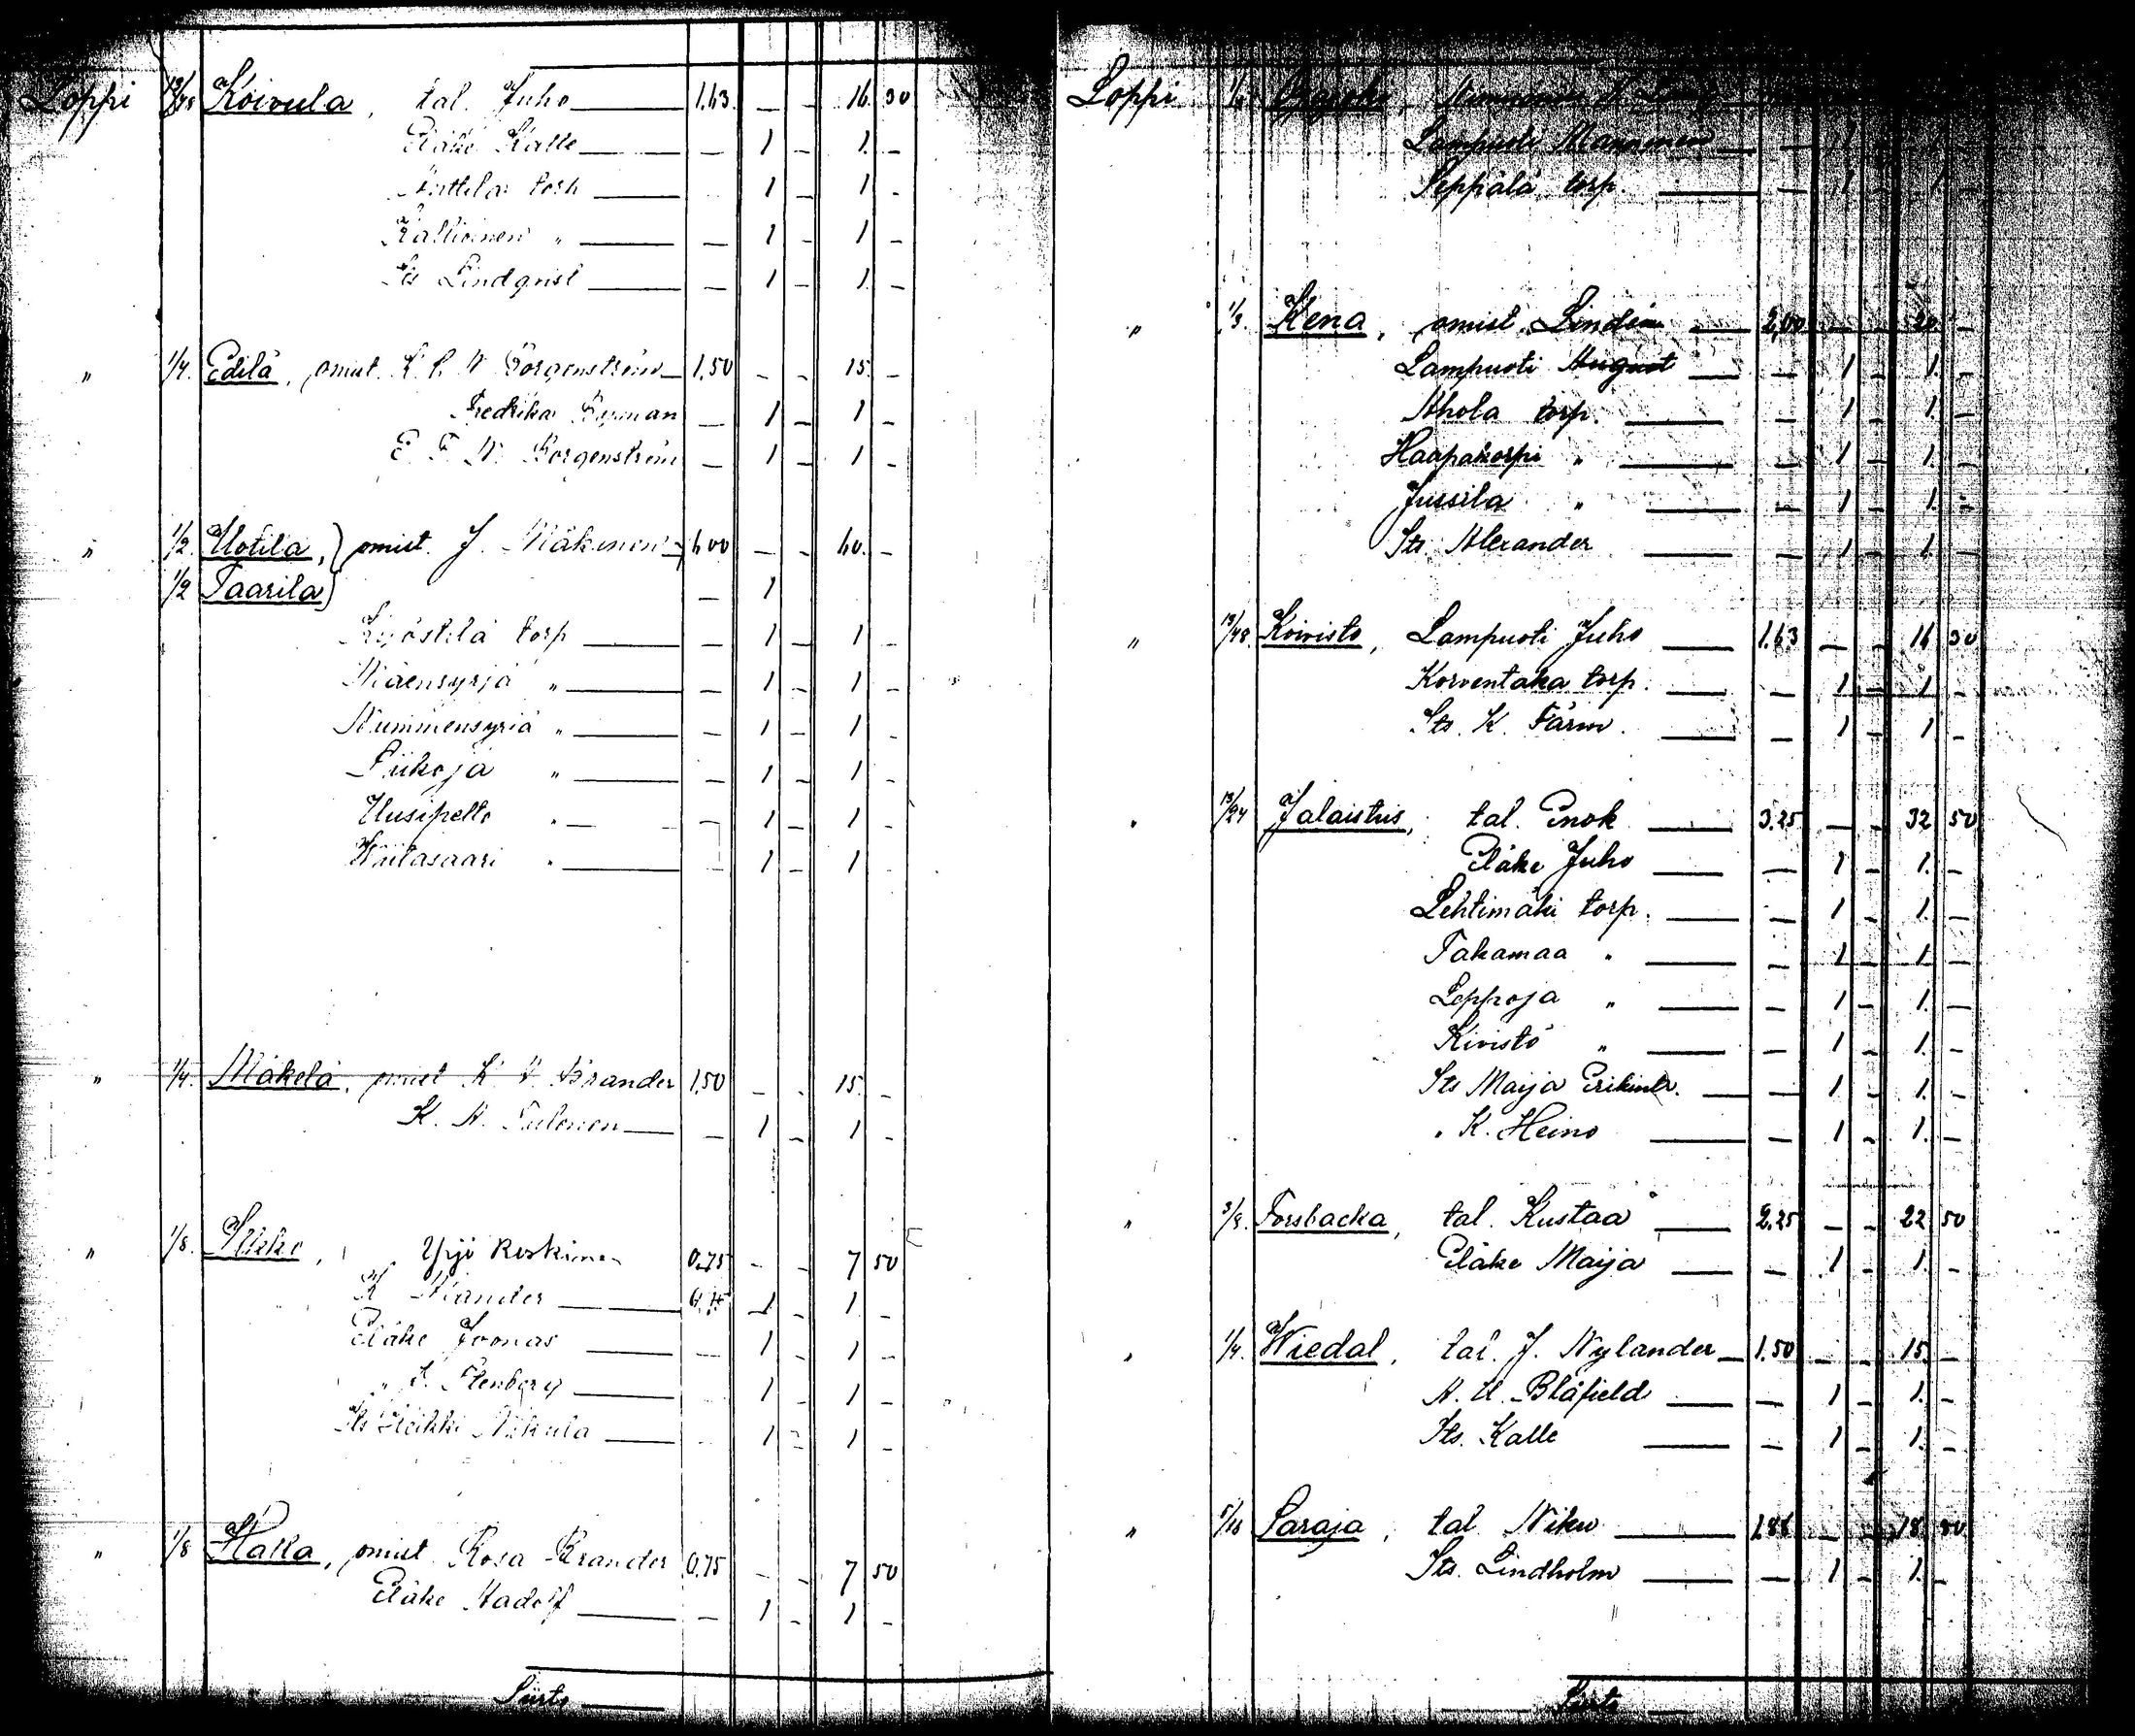 Loppi 13/48 Koivula, tal. Juho 1.63 — — 16. 30
Eläke Kalle — 1 — 1. —
Anttila torp — 1 — 1 —
Kallioinen " — 1 — 1 —
Its Lindqvist — 1 — 1. —
" 1/4. Edilä, omist. K. N. Borgenström 1.50 — — 15. —
Fredrika Nyman — 1 — 1 —
E. F. N. Borgenström — 1 — 1 —
" 1/2. Uotila, } omist. J. Mäkinen 6.00 — — 60. —
1/2 Taarila } — 1
Kyöstilä torp — 1 — 1 —
Niaensyrjä " — 1 — 1 —
Nummensyrjä " — 1 — 1 —
Piikoja " — 1 — 1 —
Uusipelto " — 1 — 1 —
Kiilasaari " — 1 — 1
" 1/4. Mäkelä, omist K. A. Brander 1.50 — — 15. —
K. A. Tulonen — 1 — 1 —
" 1/8. Yrjö Koskinen 0.75 — — 7 50
K Kiander 1 — 1. —
Eläke Joonas — 1 — 1 —
" Stenberg — 1 — 1 —
Its Heikki Nikula — 1 — 1 —
" 1/8 Haka, omist Rosa Brander 0.75 — — 7 50
Eläke Nadolf — 1 — 1 —
Siirto
Loppi Ojajoki,
Lampuoti Manninen — 1 — 1 —
Seppälä torp. — 1 — 1 —
" 1/3. Kena, omist. Linden 2,00 — — 20. —
Lampuoti August — 1 — 1. —
Ahola torp. — 1 — 1. —
Haapakorpi " — 1 — 1. —
Jussila " — 1 — 1. —
Its. Alexander — 1 — 1. —
" 13/48. Koivisto, Lampuoti Juho 1.63 — — 16 30
Korventaka torp. — 1 — 1 —
Its. K. Färm. — 1 — 1. —
" 13/24 Jalaistus, tal. Enok 3.25 — — 32 50
Eläke Juho — 1 — 1. —
Lehtimäki torp. — 1 — 1. —
Takamaa " — 1 — 1. —
Leppoja " — 1 — 1. —
Kivistö " — 1 — 1. —
Its Maija Erikint. — 1 — 1. —
" K. Heino — 1 — 1. —
" 3/8. Forsbacka, tal. Kustaa 2.25 — — 22 50
Eläke Maija — 1 — 1. —
" 1/4. Wiedal, tal. J. Nylander 1.50 — — 15. —
A. U. Blåfield — 1 — 1. —
Its. Kalle — 1 — 1. —
" 5/16 Saraja, tal Niku 1.88 — — 18. 80
Its. Lindholm — 1 — 1. —
Siirto